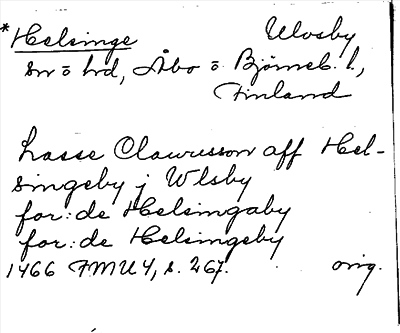 * Helsinge Ulvsby
sn o hd, Åbo o Björneb. l.,
Finland
Lasse Clawusson aff Hel-
singeby j Wlsby
for: de Helsingaby
for: de Helsingeby
1466 FMU 4, s. 267. orig.